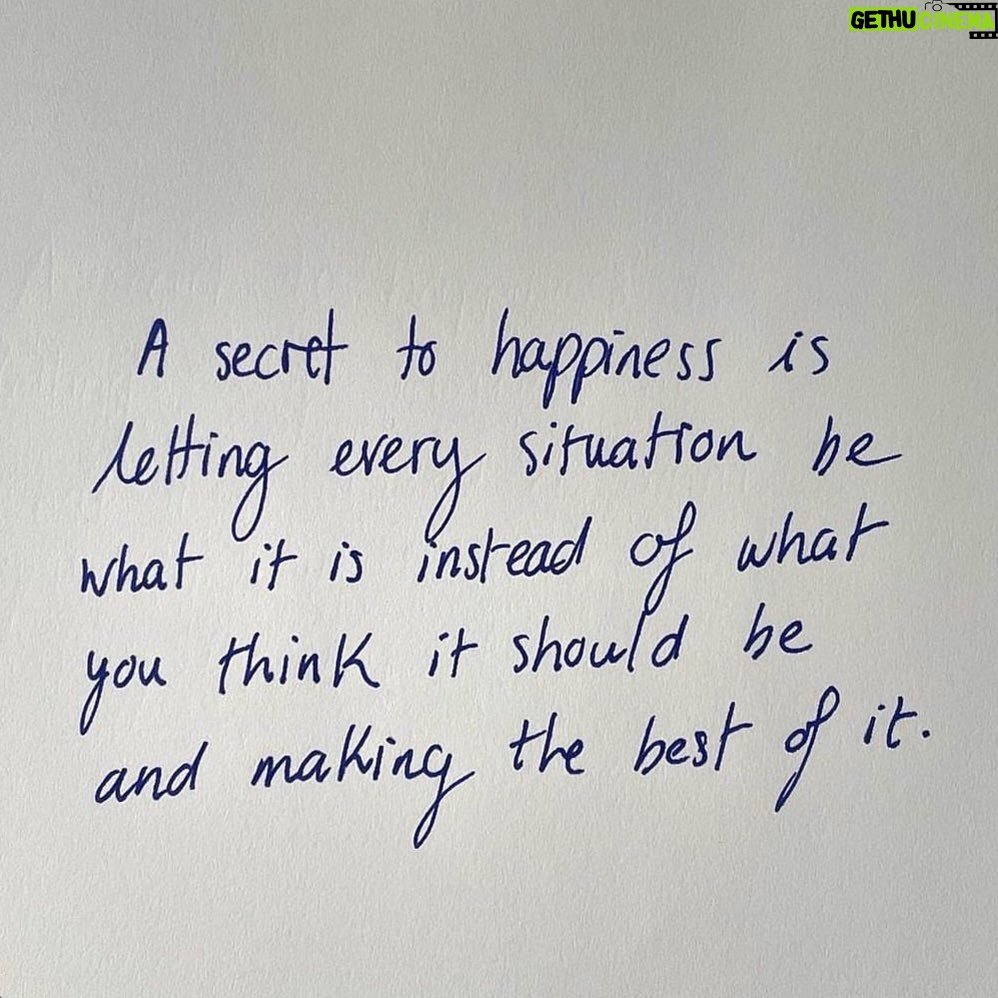 GETHU CINEMA
A secret to happiness is
letting every situation be
what it is instead of what
you think it should be
and making the best of it.